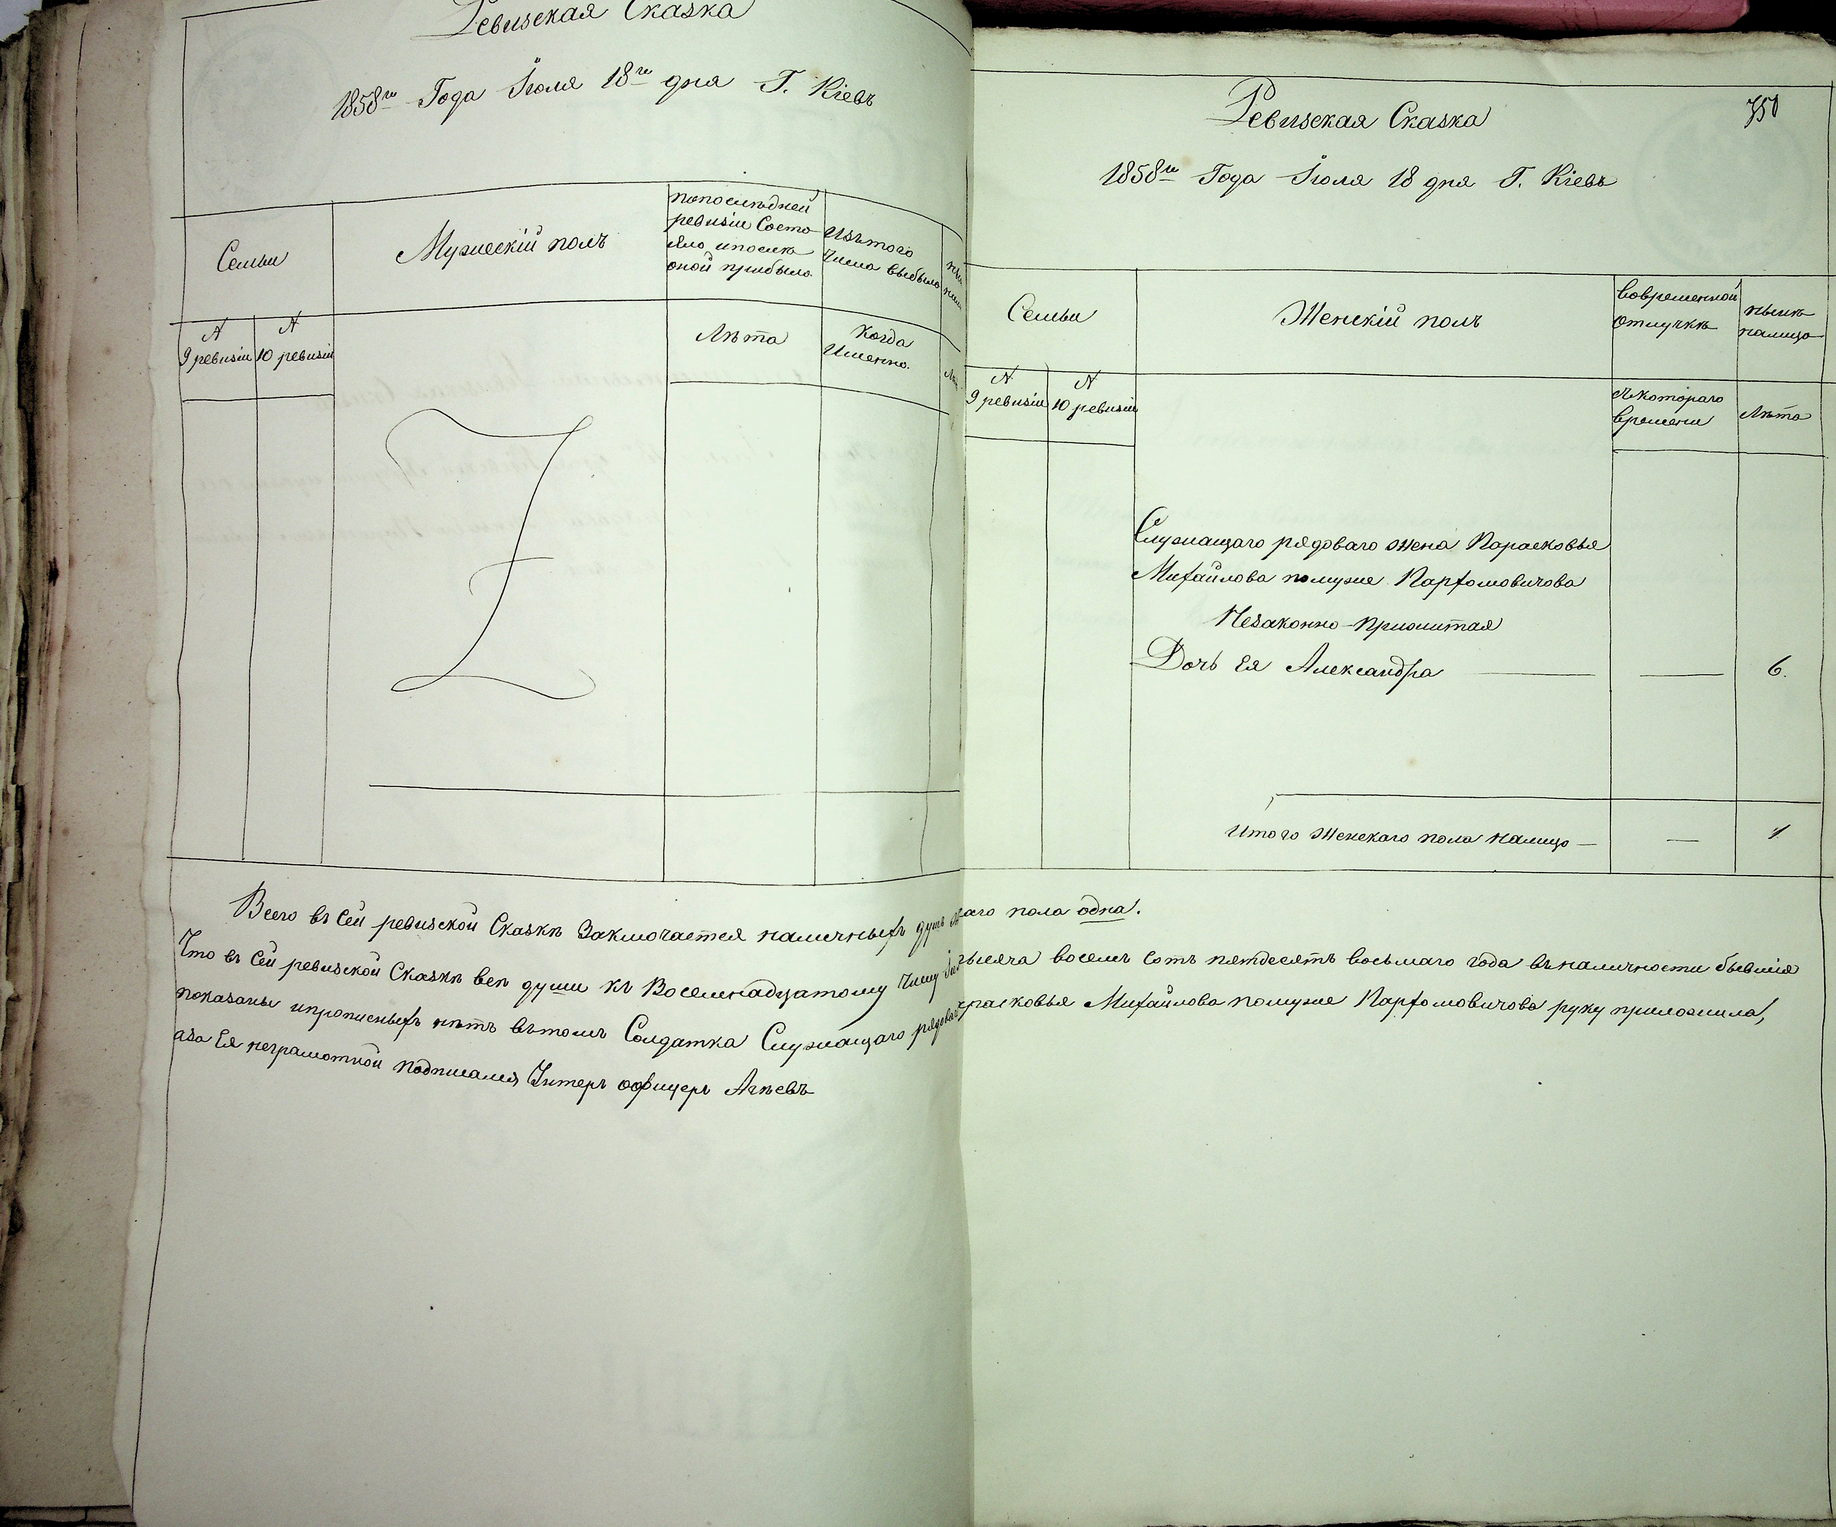 Ревизская Сказка
1858го Года Iюля 18го дня Г. Кiевъ
Семьи
Мужескiй полъ
попоследней
ревизiи Состо
яло ипосле
оной прибыло
Изътого
Числа выбыло
№
9 ревизiи
№
10 ревизiи
Лѣта
Когда
Именно.
Ревизская Сказка
350
1858го Года Iюля 18 дня Г. Кiевъ
Семьи
Женскiй полъ
вовременной
отлучкѣ
нынѣ
налицо
№
9 ревизiи
№
10 ревизiи
съкотораго
времени
Лѣта
Служащаго рядоваго жена Парасковья
Михайлова помуже Пархомовичова
Незаконно-прижитая
Дочь Ея Александра 6.
Итого Женскаго пола налицо — — 1
Всего въ Сей ревизской Сказкѣ Заключается наличныхъ душъ аго пола одна.
Что въ Сей ревизской Сказкѣ всѣ души къ Восемнадцатому Числу тысяча восемь сотъ пятдесятъ восьмаго года въналичности бывшiя
показаны ипрописныхъ нѣтъ вътомъ Солдатка Служащаго рядоваго Михайлова помуже Пархомовичова руку приложила,
аза Ея неграмотной подписался Унтеръ офицеръ Агѣевъ